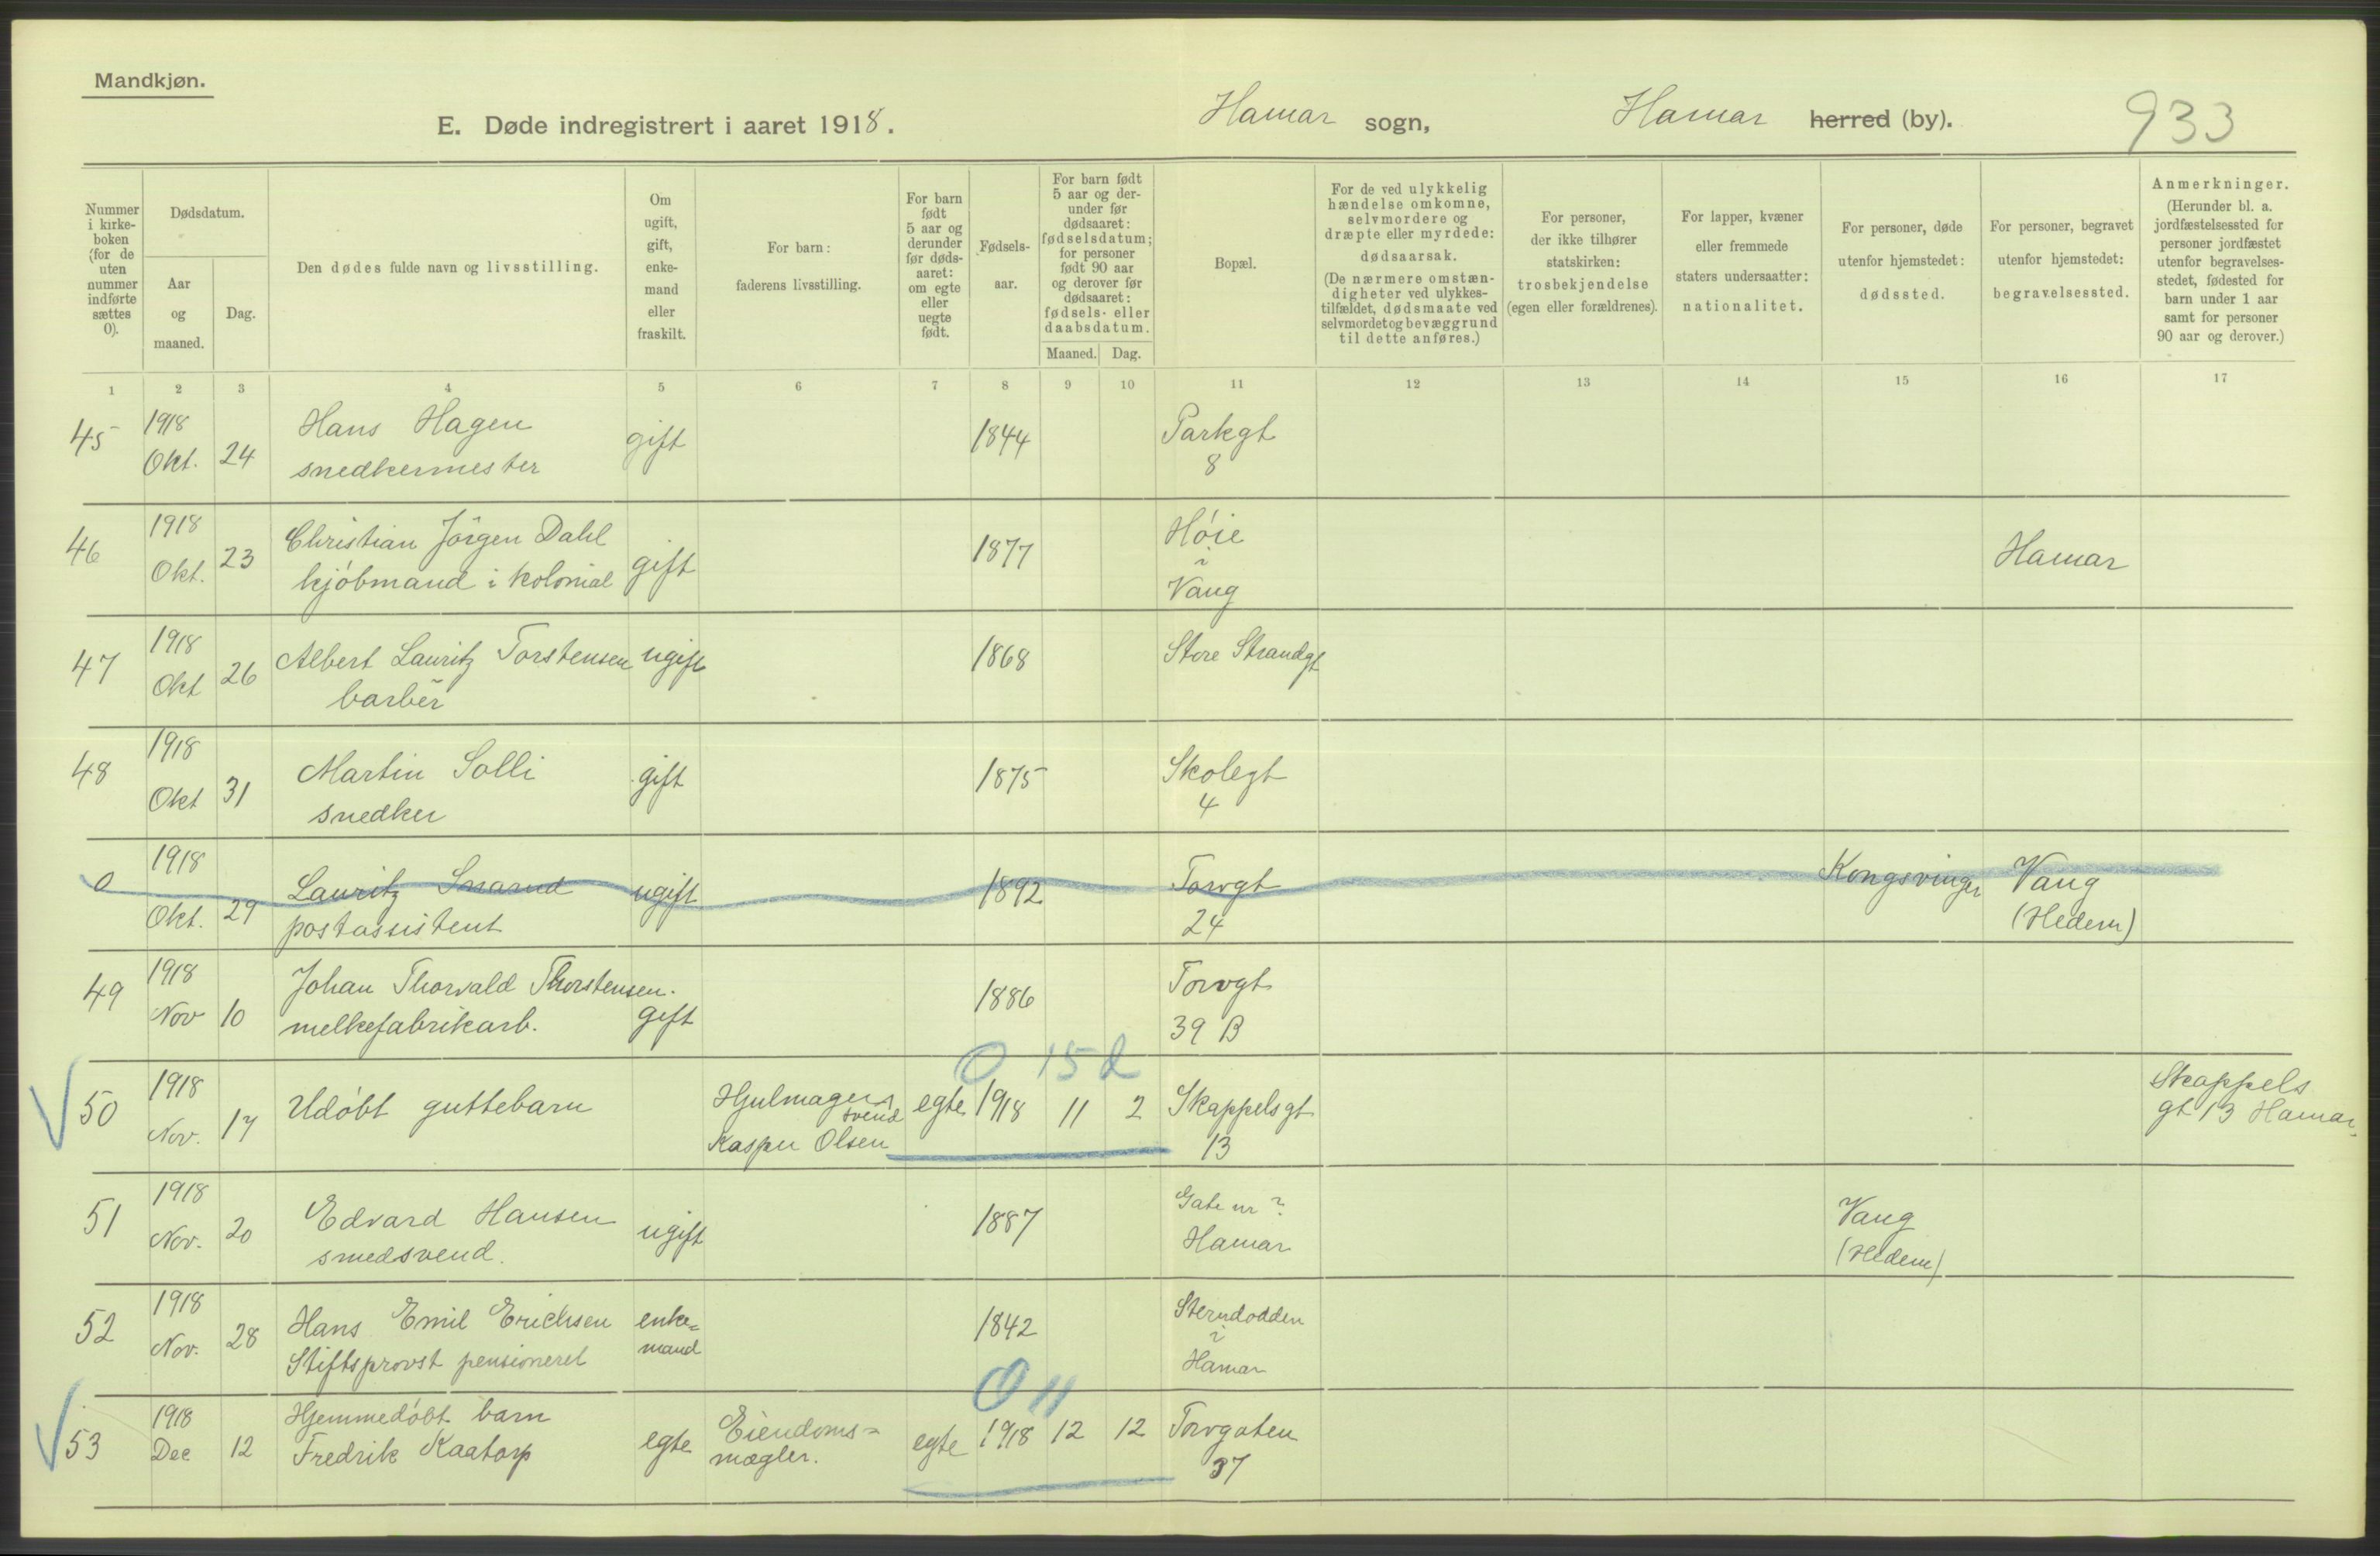 Mandkjøn.
E. Døde indregistrert i aaret 1918.
Hamar sogn,
Hamar herred (by).
933
Nummer i kirke-boken (for de uten nummer indførte sættes 0).
Dødsdatum.
Aar og maaned.
Dag.
Den dødes fulde navn og livsstilling.
Om ugift, gift, enke-mand eller fraskilt.
For barn: faderens livsstilling.
For barn født 5 aar og derunder før døds-aaret: om egte eller uegte født.
Fødsels-aar.
For barn født 5 aar og der-under før dødsaaret: fødselsdatum; for personer født 90 aar og derover før dødsaaret: fødsels- eller daabsdatum.
Maaned.
Dag.
Bopæl.
For de ved ulykkelig hændelse omkomne, selvmordere og dræpte eller myrdede: dødsaarsak.
(De nærmere omstæn-digheter ved ulykkes-tilfældet, dødsmaate ved selvmordet og bevæggrund til dette anføres.)
For personer, der ikke tilhører statskirken: trosbekjendelse (egen eller forældrenes).
For lapper, kvæner eller fremmede staters undersaatter: nationalitet.
For personer, døde utenfor hjemstedet: dødssted.
For personer, begravet utenfor hjemstedet: begravelsessted.
Anmerkninger.
(Herunder bl. a. jordfæstelsessted for personer jordfæstet utenfor begravelses-stedet, fødested for barn under 1 aar samt for personer 90 aar og derover.)
1 2 3 4 5 6 7 8 9 10 11 12 13 14 15 16 17
45 1918 Okt. 24 Hans Hagen snedkermester gift 1844 Parkgt 8
46 1918 Okt. 23 Christian Jörgen Dahl kjóbmand i kolonial gift 1877 Hóie i Vang Hamar
47 1918 Okt 26 Albert Lauritz Torstensen barber ugift 1868 Store Strandgt
48 1918 Okt 31 Martin Solli snedker gift 1875 Skolegt 4
0 1918 Okt. 29 Lauritz postassistent ugift 1892 Torvgt 24 Kongsvinger Vang (Hedem)
49 1918 Nov 10 Johan Thorvald Thorstensen. melkefabrikarb. gift 1886 Torvgt 39 B
0 15 d
50 1918 Nov. 17 Udóbt guttebarn Hjulmager svend Kasper Olsen egte 1918 11 2 Skappelsgt 13 Skappels gt 13 Hamar.
51 1918 Nov. 20 Edvard Hansen smedsvend. ugift 1887 Gate nr ? Hamar Vang (Hedem)
52 1918 Nov. 28 Hans Emil Erichsen Stiftsprovst pensioneret enke= mand 1842 i Hamar
0 11
53 1918 Dec 12 Hjemmedóbt barn Fredrik Kaatorp egte Eiendoms= mægler. egte 1918 12 12 Torvgaten 37